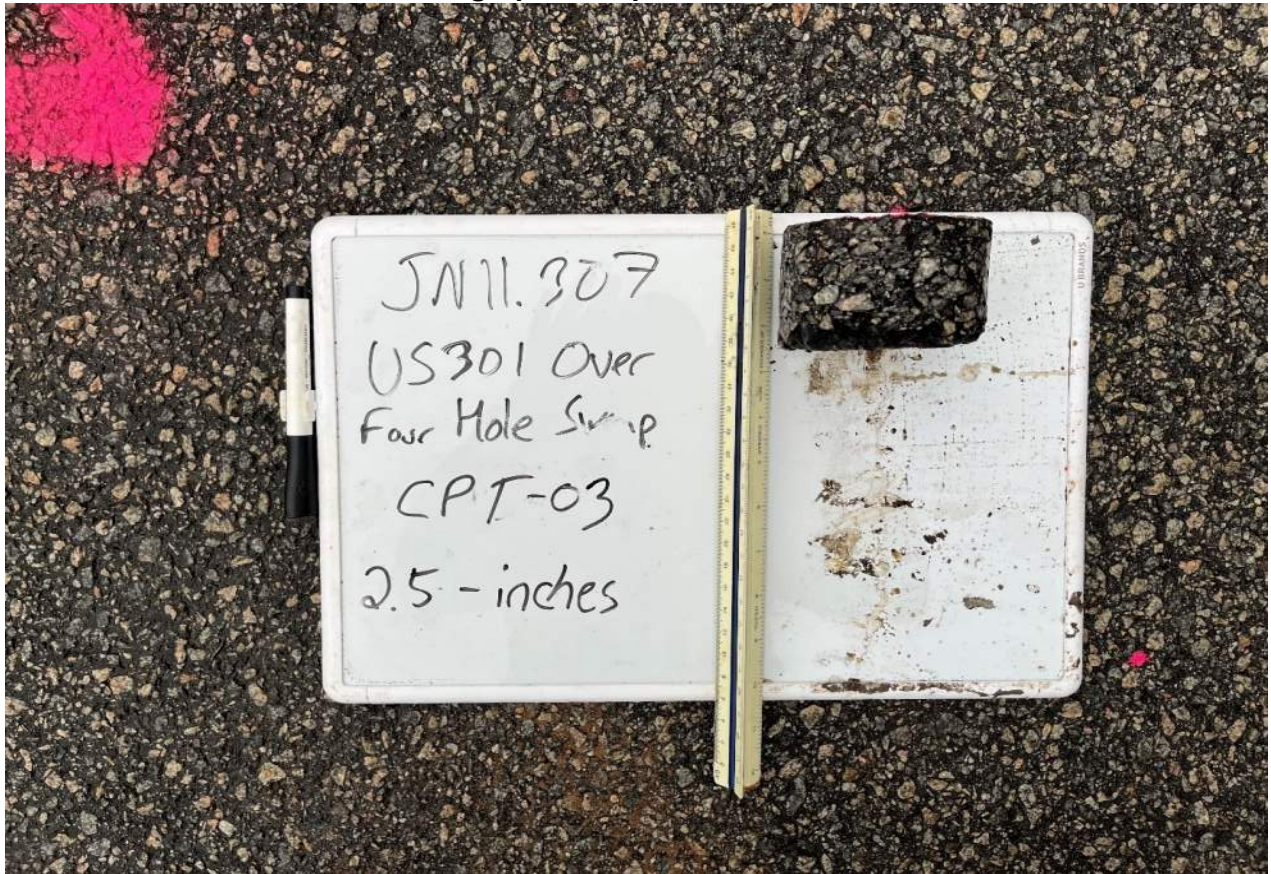 JN11.307
US301 Over
Four Hole
CPT-03
2.5-inches
U BRANDS